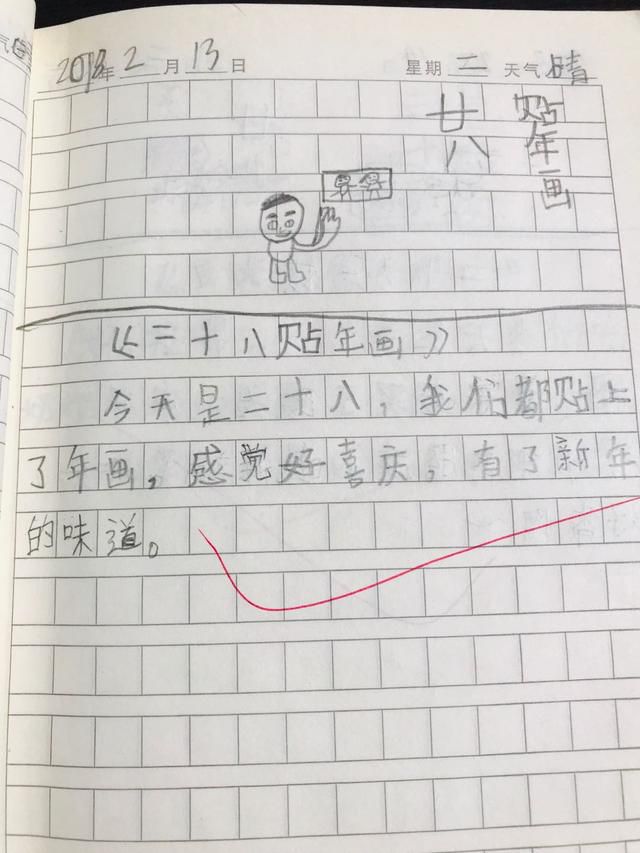 2018年2月13日 星期二 天气晴
廿八
贴年画
《二十八贴年画》
今天是二十八,我们都贴上
了年画,感觉好喜庆,有了新年
的味道。